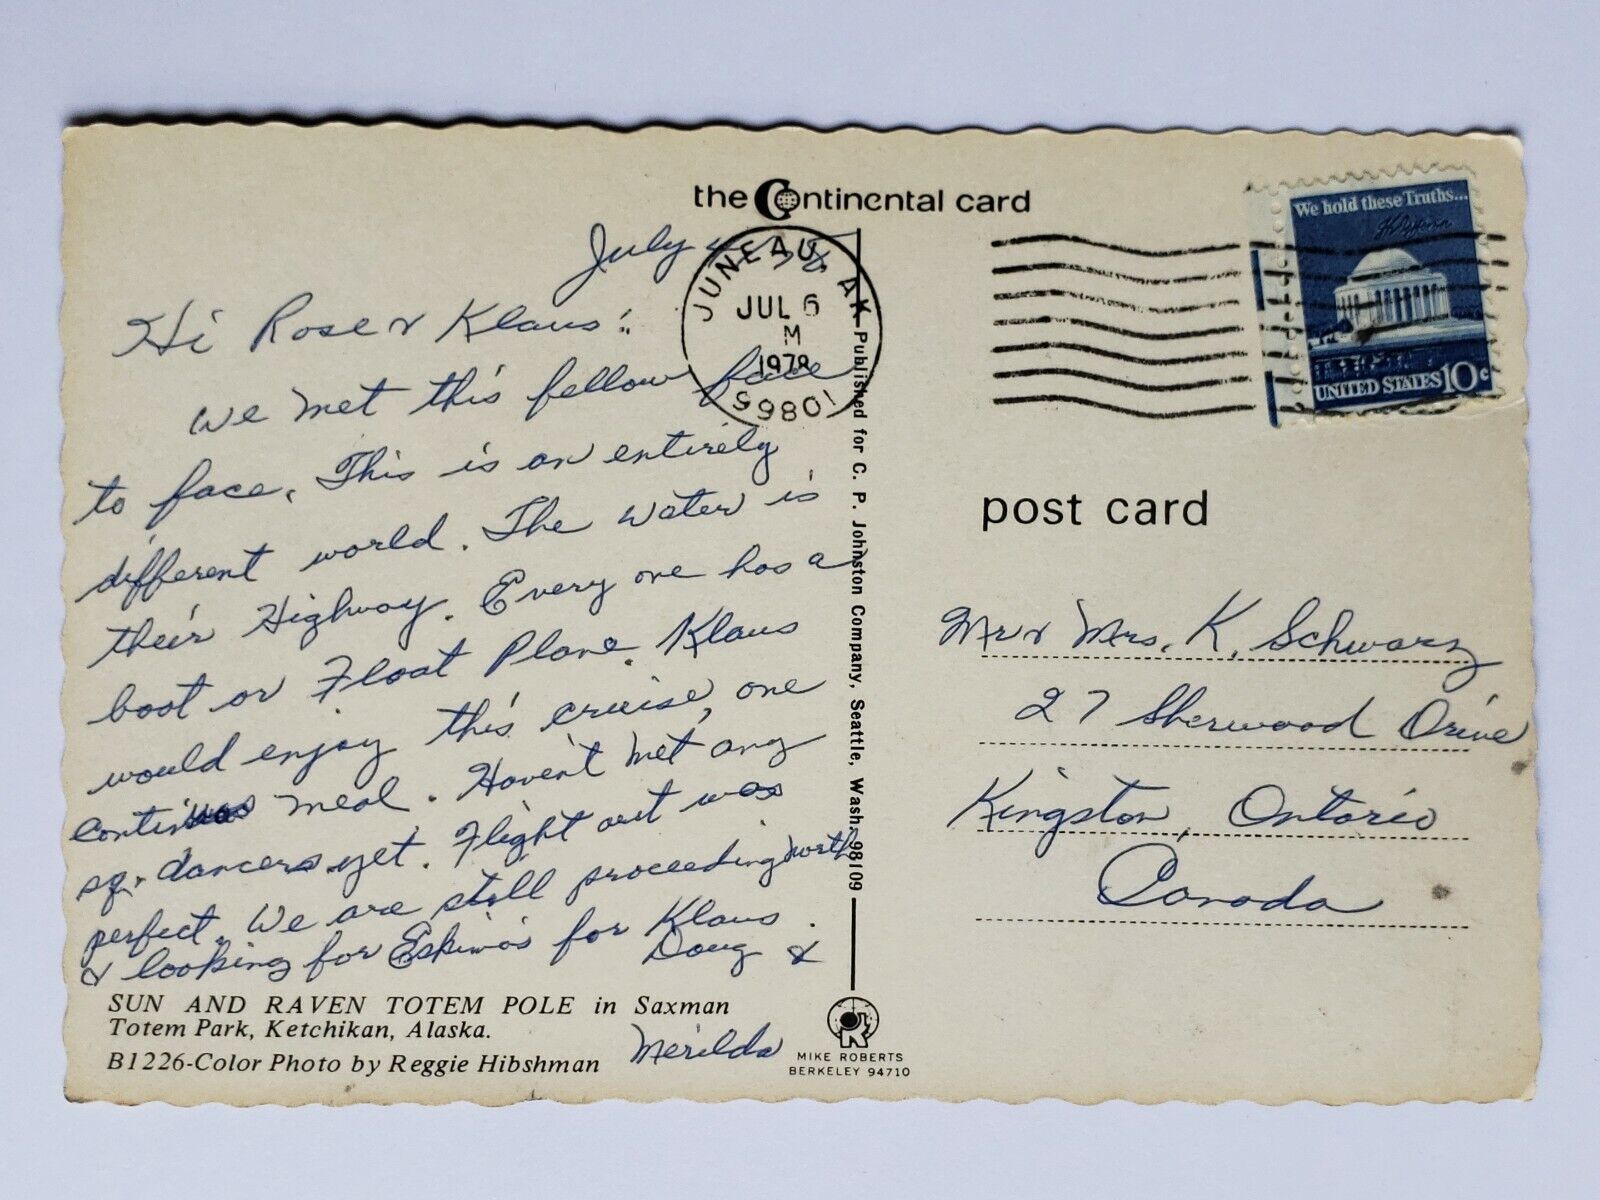 the Continental card
July 4 - 78
Hi Rose & Klaus:
We met this fellow face
to face. This is an entirely
different world. The water is
their Highway. Every one has a
boat or Float Plane. Klaus
would enjoy this cruise, one
continuos meal. Haven't met any
sq. dancers yet. Flight out was
perfect. We are still proceeding north
& looking for Eskimo's for Klaus.
Doug &
Merilda
SUN AND RAVEN TOTEM POLE in Saxman
Totem Park, Ketchikan, Alaska.
B1226-Color Photo by Reggie Hibshman
JUNEAU, AK
JUL 6
M
1978
99801
Published for C. P. Johnston Company, Seattle, Wash. 98109
MIKE ROBERTS
BERKELEY 94710
We hold these Truths...
UNITED STATES 10c
post card
Mr & Mrs. K. Schwarz
27 Sherwood Drive
Kingston, Ontario
Canada